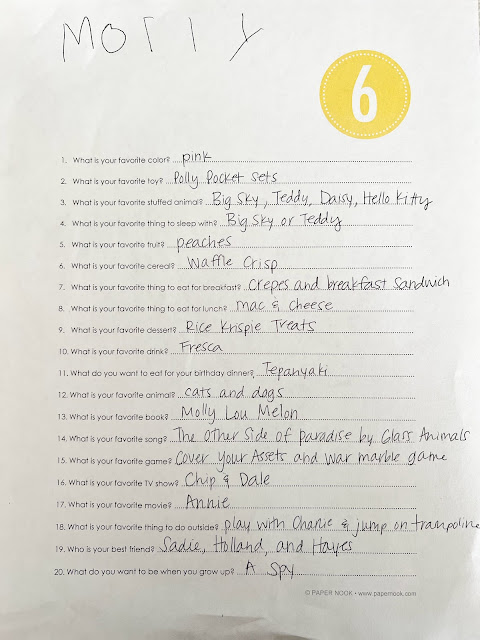 Molly
6
1. What is your favorite color? pink
2. What is your favorite toy? Polly Pocket sets
3. What is your favorite stuffed animal? Big Sky, Teddy, Daisy, Hello Kitty
4. What is your favorite thing to sleep with? Big Sky or Teddy
5. What is your favorite fruit? peaches
6. What is your favorite cereal? Waffle Crisp
7. What is your favorite thing to eat for breakfast? crepes and breakfast sandwich
8. What is your favorite thing to eat for lunch? mac & cheese
9. What is your favorite dessert? Rice Krispie Treats
10. What is your favorite drink? Fresca
11. What do you want to eat for your birthday dinner? Tepanyaki
12. What is your favorite animal? cats and dogs
13. What is your favorite book? Molly Lou Melon
14. What is your favorite song? The other side of paradise by Glass Animals
15. What is your favorite game? Cover Your Assets and war marble game
16. What is your favorite TV show? Chip & Dale
17. What is your favorite movie? Annie
18. What is your favorite thing to do outside? play with & jump on trampoline
19. Who is your best friend? Sadie, Holland, and Hayes
20. What do you want to be when you grow up? A Spy
© PAPER NOOK • www.papernook.com